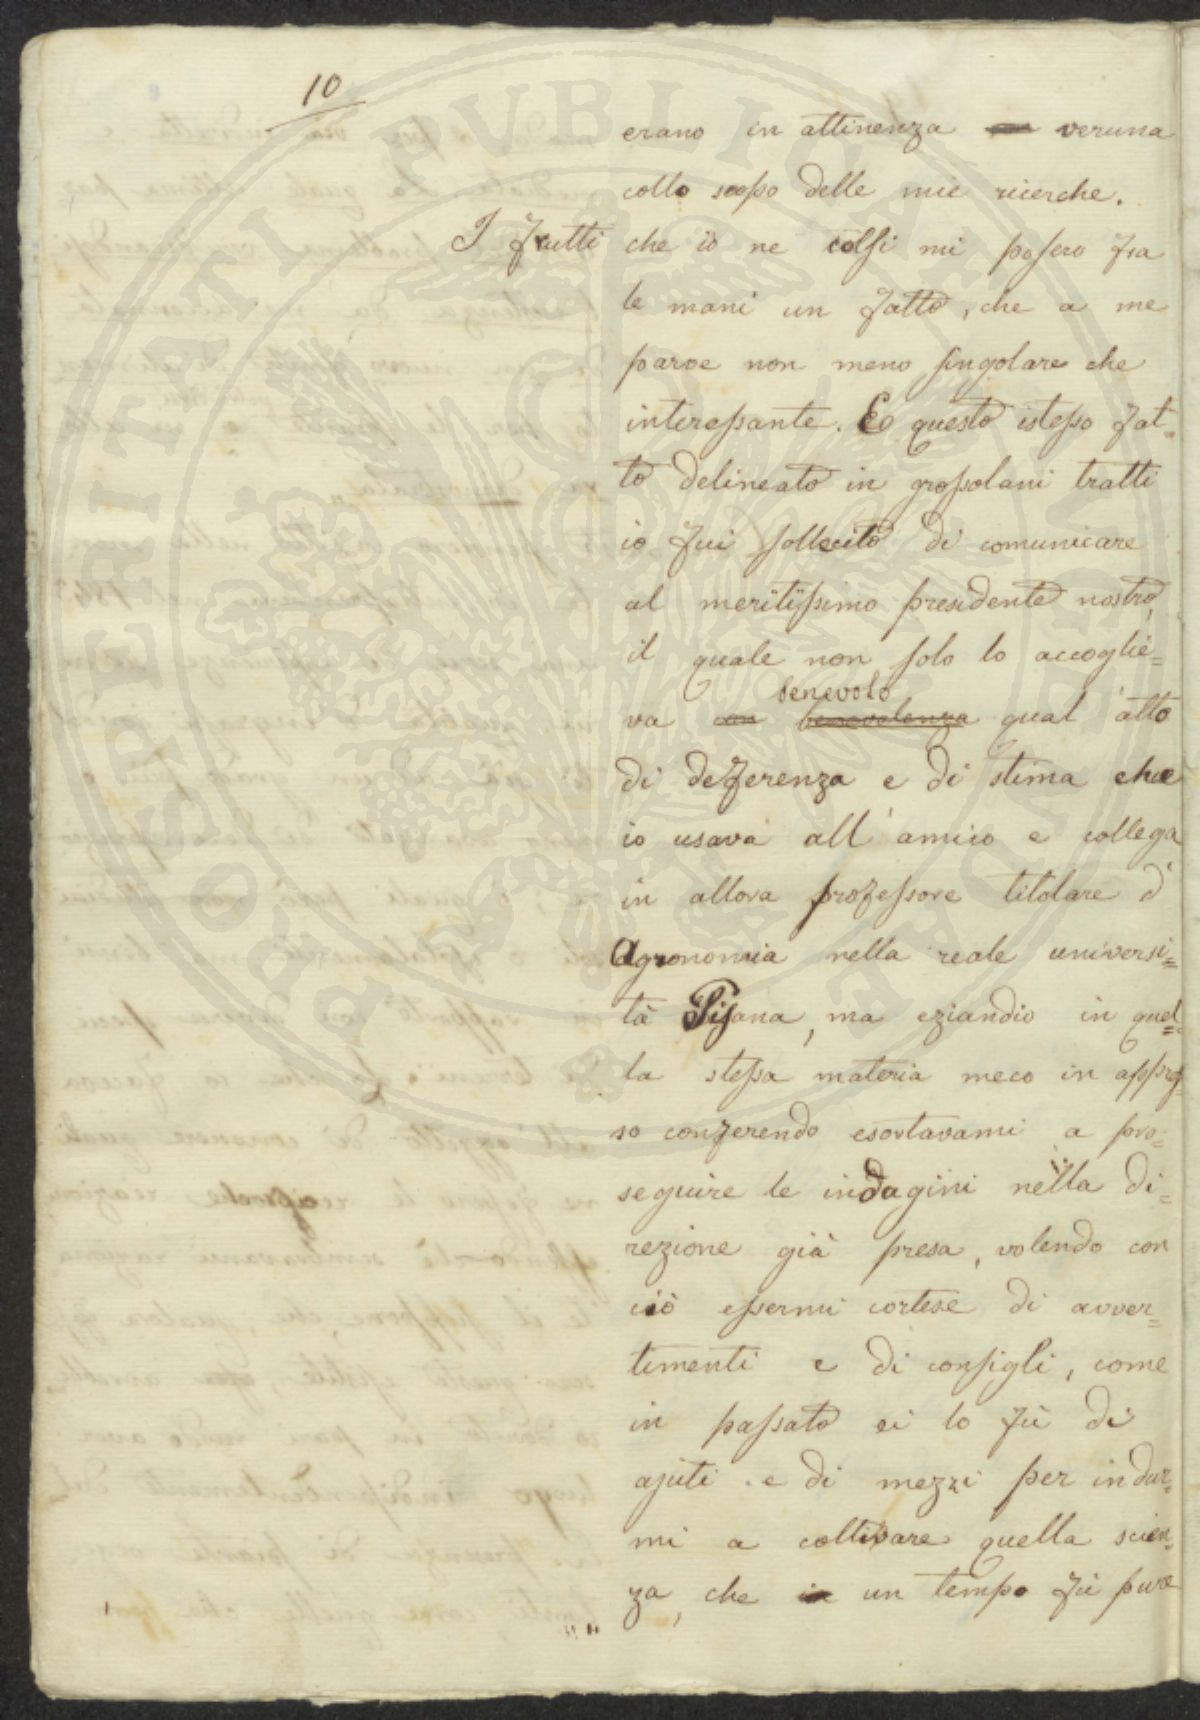 10
erano in attinenza veruna
collo scopo delle mie ricerche.
I frutti che io ne colsi mi posero fra
le mani un fatto, che a me
parve non meno singolare che
interessante. Eo questo istesso fat-
to delineato in grossolani tratti
io fui sollecito di comunicare
al meritissimo presidente nostro,
il quale non solo lo accoglie=
benevolo
va con benevolenza qual'atto
di deferenza e di stima che
io usava all'amico e collega
in allora professore titolare d'
Agronomia nella reale universi=
tà Pisana, ma eziandio in quel=
la stessa materia meco in appres
so conferendo esortavami a pro-
seguire le indagini nella di=
rezione già presa, volendo con
ciò essermi cortese di avver=
timenti e di consigli, come
in passato ei lo fù di
ajuti e di mezzi per indur=
mi a coltivare quella scien=
za, che un tempo fù pure
PROSPERITATI PUBLICAE AUGENDAE